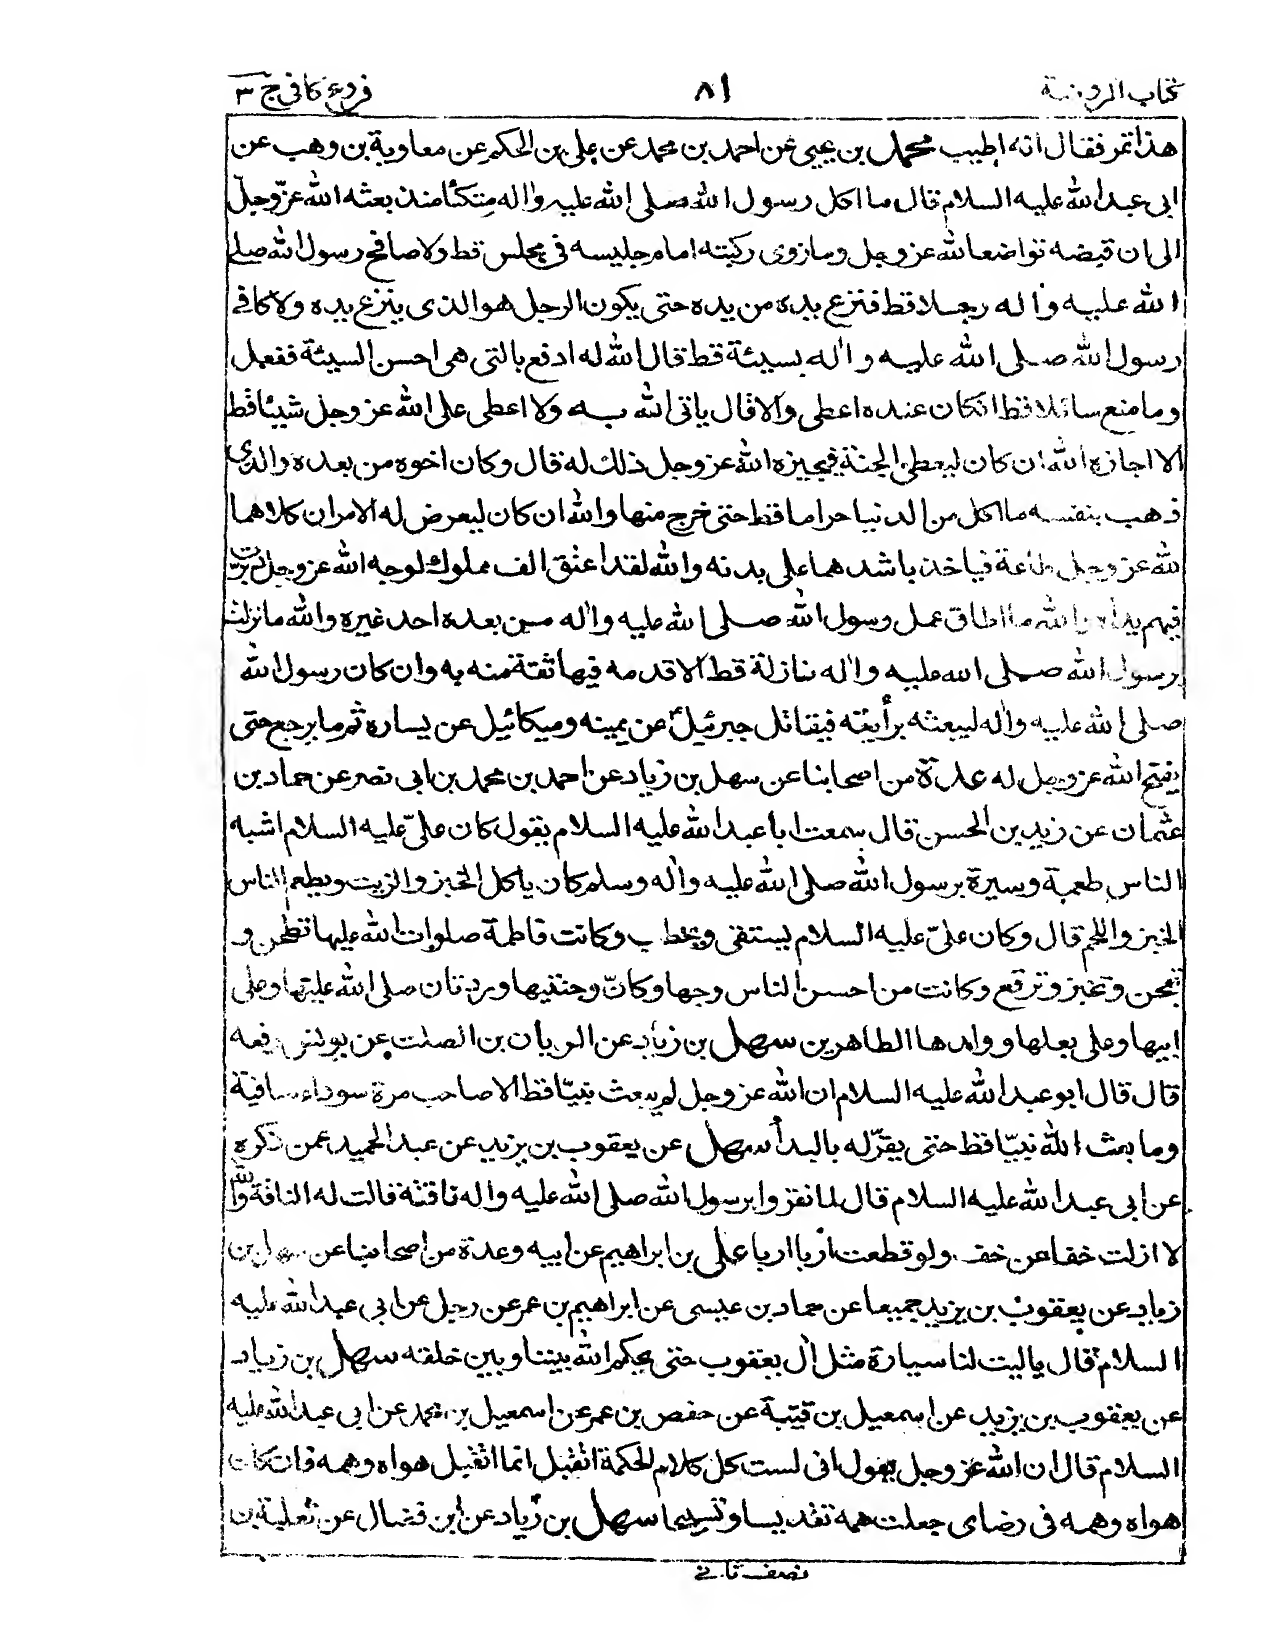 كتاب الروضة
٨١
فروع كافى ج ٣
هذا تمر فقال انه اطيب محمد بن يحيى عن احمد بن محمد عن على بن الحكم عن معاوية بن وهب عن
ابى عبد الله عليه السلام قال ما اكل رسول الله صلى الله عليه واله متكئا منذ بعثه الله عزّ وجلّ
الى ان قبضه تواضعا لله عز وجل وما زوى ركبته امام جليسه فى مجلس قط ولا صافح رسول الله صلى
الله عليه واله رجلا قط فنزع يده من يده حتى يكون الرجل هو الذى ينزع يده ولا كافى
رسول الله صلى الله عليه واله بسيئة قط قال الله له ادفع بالتى هى احسن السيئة ففعل
وما منع سائلا قط ان كان عنده اعطى والا قال ياتى الله به ولا اعطى على الله عز وجل شيئا قط
الا اجازه الله ان كان ليعطى الجنة فيجيزه الله عز وجل ذلك له قال وكان اخوه من بعده والذى
ذهب بنفسه ما اكل من الدنيا حراما قط حتى خرج منها والله ان كان ليعرض له الامران كلاهما
لله عز وجل طاعة فياخذ باشدهما على بدنه والله لقد اعتق الف مملوك لوجه الله عز وجل دبرت
فيهم يداه والله ما اطاق عمل رسول الله صلى الله عليه واله من بعده احد غيره والله ما نزلت
برسول الله صلى الله عليه واله نازلة قط الا قدمه فيها ثقة منه به وان كان رسول الله
صلى الله عليه واله ليبعثه برأيته فيقاتل جبرئيل عن يمينه وميكائيل عن يساره ثم ما يرجع حتى
يفتح الله عز وجل له عدة من اصحابنا عن سهل بن زياد عن احمد بن محمد بن ابى نصر عن حماد بن
عثمان عن زيد بن الحسن قال سمعت ابا عبد الله عليه السلام يقول كان علىّ عليه السلام اشبه
الناس طعمة وسيرة برسول الله صلى الله عليه واله وسلم كان ياكل الخبز والزيت ويطعم الناس
الخبز واللحم قال وكان علىّ عليه السلام يستقى ويحطب وكانت فاطمة صلوات الله عليها تطحن و
تعجن وتخبز وترقع وكانت من احسن الناس وجها وكانّ وجنتيها وردتان صلى الله عليها وعلى
ابيها وعلى بعلها وولدها الطاهرين سهل بن زياد عن الريان بن الصلت عن يونس رفعه
قال قال ابو عبد الله عليه السلام ان الله عز وجل لم يبعث نبيّا قط الا صاحب مرة سوداء صافية
وما بعث الله نبيّا قط حتى يقرّ له بالبدأ سهل عن يعقوب بن يزيد عن عبد الحميد عمن ذكره
عن ابى عبد الله عليه السلام قال لما نفروا برسول الله صلى الله عليه واله ناقته قالت له الناقة والله
لا ازلت خفا عن خف ولو قطعت اربا اربا على بن ابراهيم عن ابيه وعدة من اصحابنا عن سهل بن
زياد عن يعقوب بن يزيد جميعا عن حماد بن عيسى عن ابراهيم بن عمر عن رجل عن ابى عبد الله عليه
السلام قال يا ليت لنا سيارة مثل ال يعقوب حتى يحكم الله بيننا وبين خلقه سهل بن زياد
عن يعقوب بن يزيد عن اسمعيل بن قتيبة عن حفص بن عمر عن اسمعيل بن محمد عن ابى عبد الله عليه
السلام قال ان الله عز وجل يقول انى لست كل كلام الحكمة اتقبل انما اتقبل هواه وهمه فان كان
هواه وهمه فى رضاى جعلت همه تقديسا وتسبيحا سهل بن زياد عن ابن فضال عن ثعلبة بن
نصف ثانى